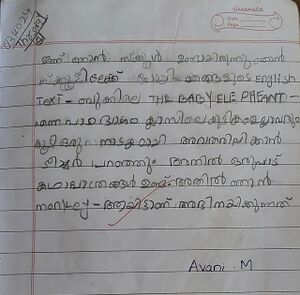 classmate
Date
Page
03/12/024
ഇന്ന് ഞാൻ സ്ക്കൂൾ ഉണ്ടായിരുന്നു ഞാൻ
സ്ക്കൂളിലേക്ക് പോയി ഞങ്ങളുടെ English
TEXT - ബുക്കിലെ THE BABY ELEPHANT -
എന്ന പാഠഭാഗം ക്ലാസിലെ കുട്ടികളെല്ലാവരും
കൂടി ഒരു നാടകമായി അവതരിപ്പിക്കാൻ
ടീച്ചർ പറഞ്ഞു അതിൽ ഒരുപാട്
കഥാപാത്രങ്ങൾ ഉണ്ട് അതിൽ ഞാൻ
monkey - ആയിട്ടാണ് അഭിനയിക്കുന്നത്
Avani . M